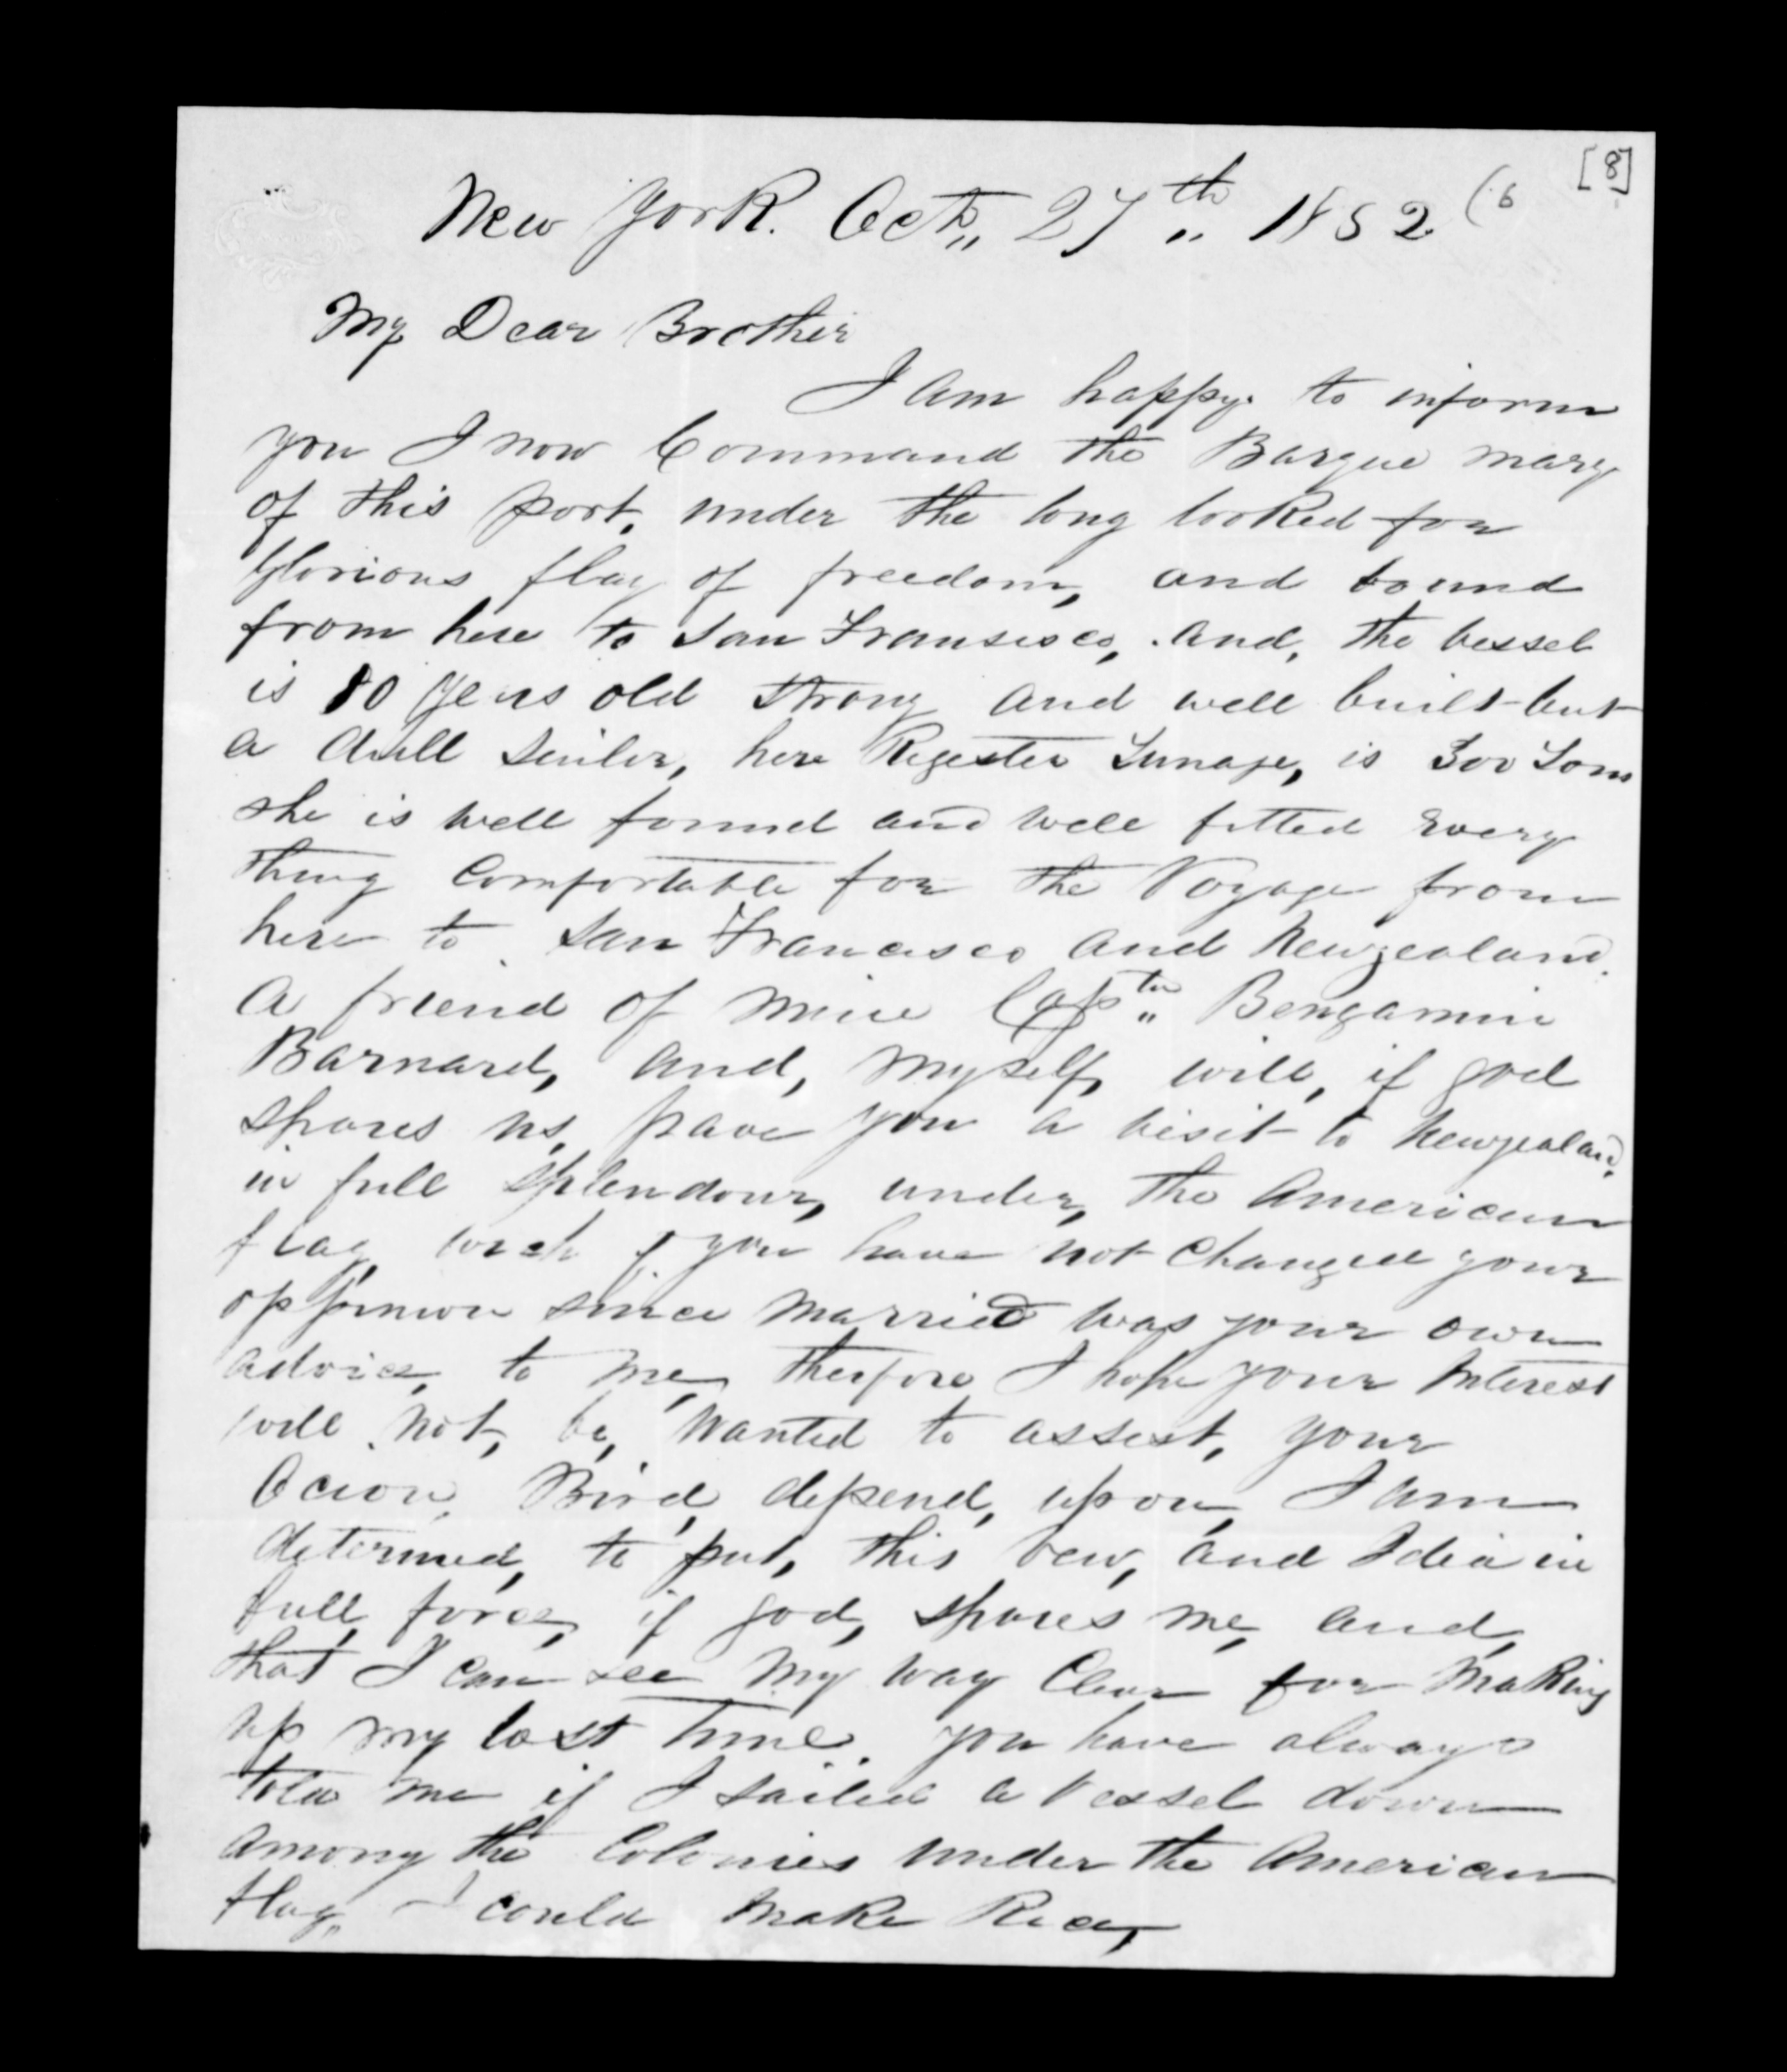 [8]
New York. Octr,, 27th,, 1852 (6
My Dear Brother
I am happy to inform
you I now Command the Barque mary
of this port, under the long looked for
glorious flag of freedom, and bound
from here to San Fransisco, and, the vessel
is 10 years old strong and well built but
a dull sailer, here Regester Tunage, is 300 Tons
she is well found and well fitted Every
thing Comfortable for the Voyage from
here to San Francisco and Newzealand.
a friend of mine Captn,, Bengamin
Barnard, and, myself, will, if god
spares us, pave you a visit to Newzealand,
in full splendour, under, the American
flag, wich if you have not changed your
oppinion since married was your own
advice, to me, therfore I hope your Interest
will not, be, wanted to assest, your
Bird, depend, upon, I am
determed, to put, this vew, and Idea in
full force, if god, spares me, and,
that I can see my way Clear for making
up my lost time. you have always
told me if I sailed a Vessel down
among the Colonies under the American
flag,, I could make